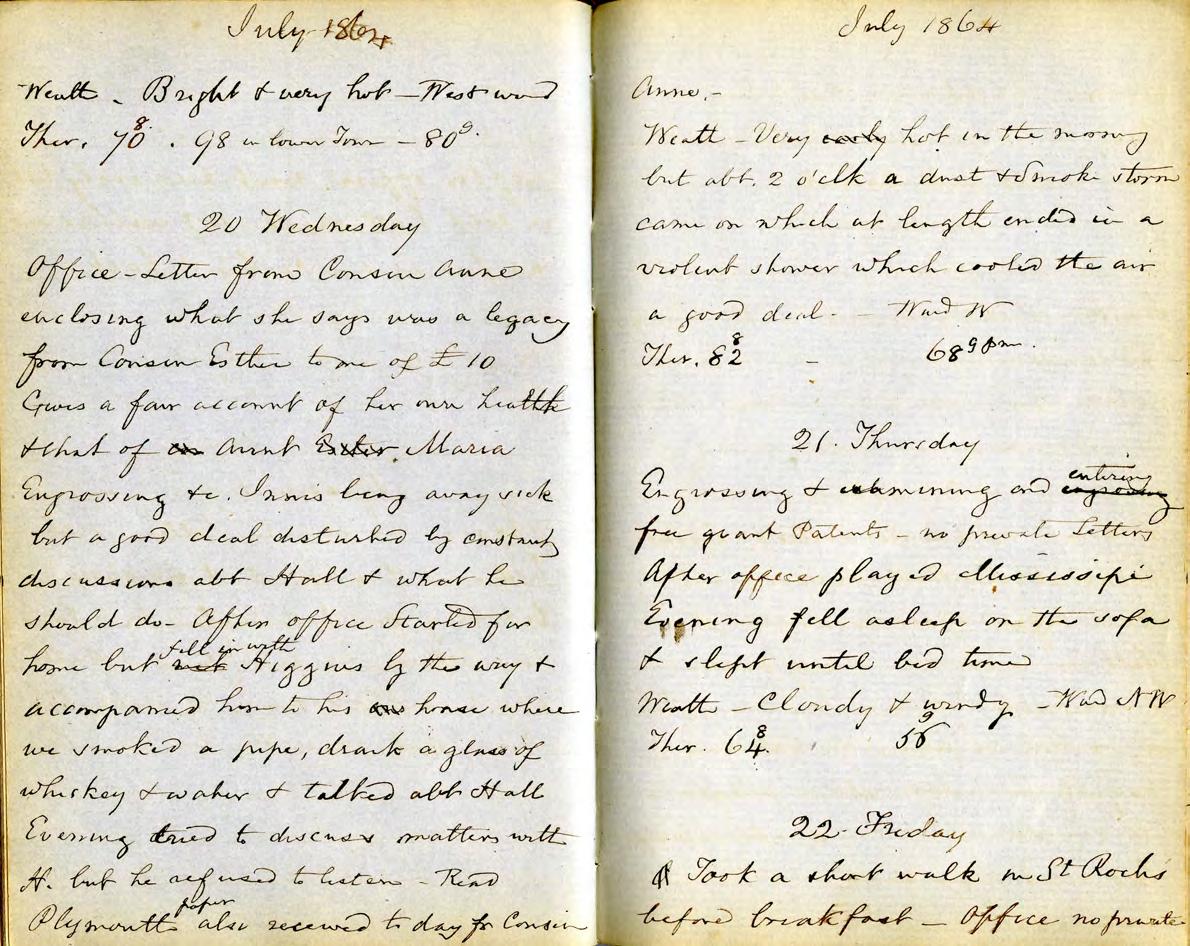 July 1864
Weath - Bright & very hot - West wind
Ther. 70 8. 98 in lower Town - 80 9.
20 Wednesday
Office - Letter from Cousin Anne
enclosing what she says was a legacy
from Cousin Esther to me of £10
Gives a fair account of her own health
& that of Aunt Ester Maria
Engrossing &c. Innis being away sick
but a good deal disturbed by constant
discussions abt Hall & what he
should do - After office Started for
fell in with
home but met Higgins by the way &
accompanied him to his house where
we smoked a pipe, drank a glass of
whiskey & water & talked abt Hall
Evening tried to discuss matters with
H. but he refused to listen - Read
paper
Plymouth also received to day fr Cousin
July 1864
Anne. -
Weath - Very early hot in the morning
but abt. 2 o'clk a dust & Smoke storm
came on which at length ended in a
violent shower which cooled the air
a good deal - Wind W
Ther. 82 8 - 68 9 pm.
21. Thursday
entering
Engrossing & examining and engrossing
free grant Patents - no private Letters
After office played Mississipi
Evening fell asleep on the sofa
& slept until bed time
Weath - Cloudy & windy - Wind NW
Ther. 64 8. 56 9
22. Friday
Took a short walk in St Rochs
before breakfast - Office no private